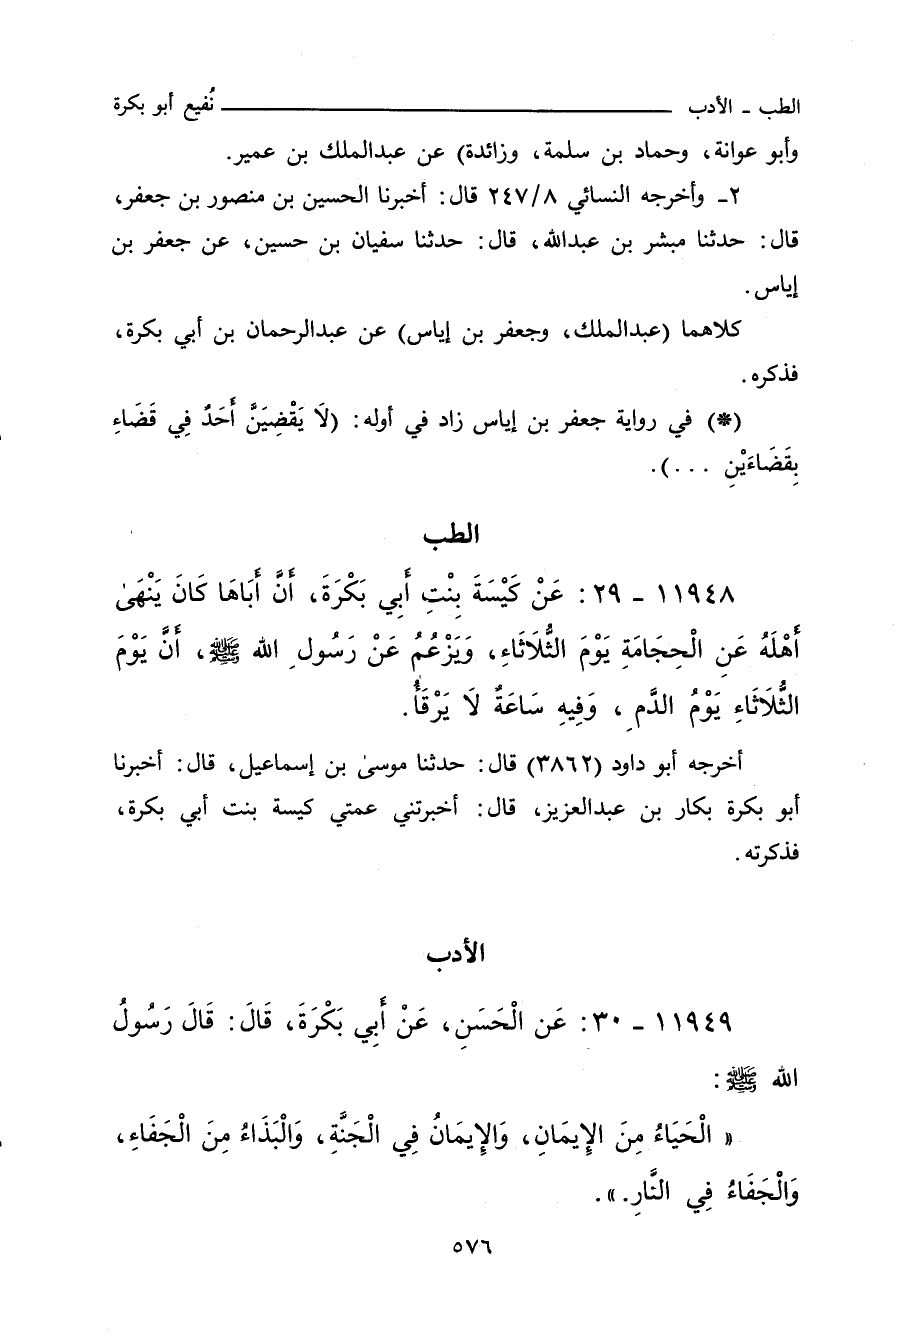 الطب - الأدب ــــــــــــــــــــ نُفيع أبو بكرة
وأبو عوانة، وحماد بن سلمة، وزائدة) عن عبدالملك بن عمير.
٢- وأخرجه النسائي ٢٤٧/٨ قال: أخبرنا الحسين بن منصور بن جعفر،
قال: حدثنا مبشر بن عبدالله، قال: حدثنا سفيان بن حسين، عن جعفر بن
إياس.
كلاهما (عبدالملك، وجعفر بن إياس) عن عبدالرحمان بن أبي بكرة،
فذكره.
(*) في رواية جعفر بن إياس زاد في أوله: (لَا يَقْضِيَنَّ أَحَدٌ فِي قَضَاءٍ
بِقَضَاءَيْنِ ...).
الطب
١١٩٤٨ - ٢٩: عَنْ كَيْسَةَ بِنْتِ أَبِي بَكْرَةَ، أَنَّ أَبَاهَا كَانَ يَنْهَىٰ
أَهْلَهُ عَنِ الْحِجَامَةِ يَوْمَ الثُّلَاثَاءِ، وَيَزْعُمُ عَنْ رَسُولِ الله ﷺ، أَنَّ يَوْمَ
الثُّلَاثَاءِ يَوْمُ الدَّمِ، وَفِيهِ سَاعَةٌ لَا يَرْقَأُ.
أخرجه أبو داود (٣٨٦٢) قال: حدثنا موسىٰ بن إسماعيل، قال: أخبرنا
أبو بكرة بكار بن عبدالعزيز، قال: أخبرتني عمتي كيسة بنت أبي بكرة،
فذكرته.
الأدب
١١٩٤٩ - ٣٠: عَنِ الْحَسَنِ، عَنْ أَبِي بَكْرَةَ، قَالَ: قَالَ رَسُولُ
الله ﷺ:
« الْحَيَاءُ مِنَ الإِيمَانِ، وَالإِيمَانُ فِي الْجَنَّةِ، وَالْبَذَاءُ مِنَ الْجَفَاءِ،
وَالْجَفَاءُ فِي النَّارِ.».
٥٧٦